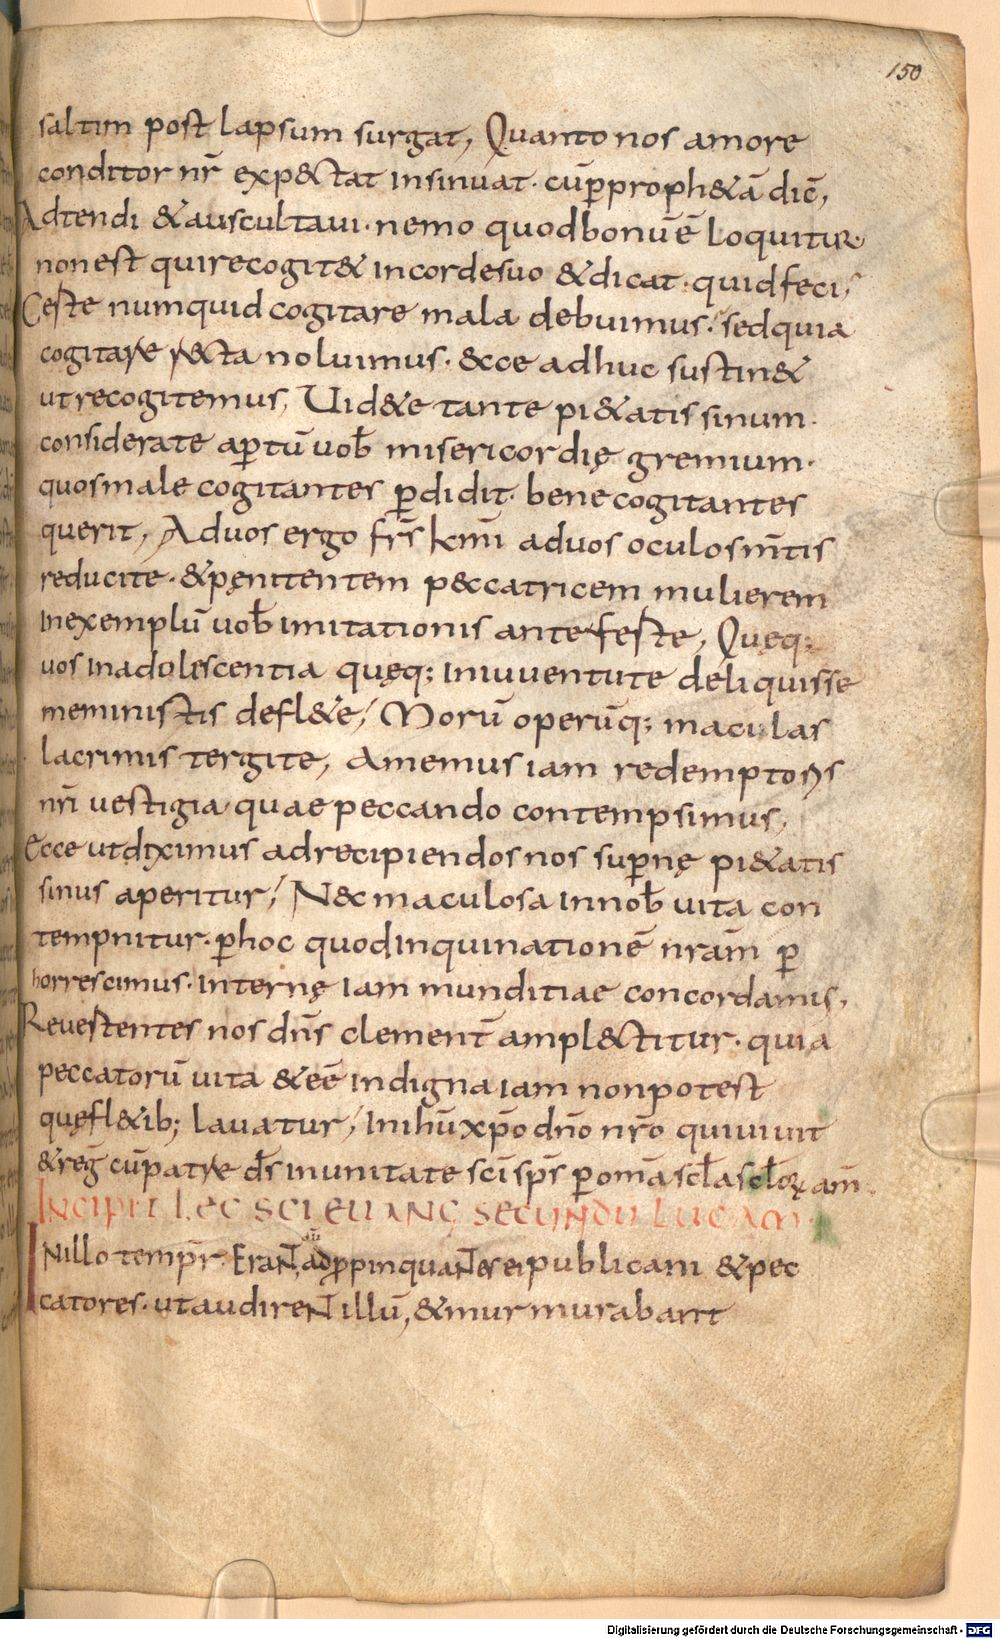 150
saltim post lapsum surgat, Quanto nos amore
conditor nr̄ exp&ctat insinuat· cū p̄proph&ā dic̄,
Adtendi & auscultaui· nemo quod bonū ē loquitur
non est qui recogit& in corde suo & dicat· quid feci,
Ceste numquid cogitare mala debuimus· sed quia
cogitare r&cta noluimus· &cce adhuc sustin&
ut recogitemus, Uid&e tante pi&atis sinum·
considerate ap̄tū uob̄ misericordię gremium·
quos male cogitantes p̄didit· bene cogitantes
querit, Ad uos ergo fr̄s km̄i ad uos oculos m̄tis
reducite· & pęnitentem p&ccatricem mulierem
in exemplū uob̄ imitationis anteferte, Quęq;
uos in adolescentia quęq; in iuuentute deliquisse
meministis defl&e, Morū operūq; maculas
lacrimis tergite, Amemus iam redemptoris
nr̄i uestigia quae peccando contempsimus,
Ecce ut diximus ad recipiendos nos sup̄nę pi&atis
sinus aperitur, N&c maculosa in nob̄ uita con
tempnitur· p̄ hoc quod inquinationē nr̄am p̄
horrescimus· internę iam munditiae concordamus,
Reuertentes nos dn̄s clement̄ ampl&ctitur· quia
peccatorū uita & eē indigna iam non potest
quę fl&ib; lauatur, In ihū xp̄o dn̄o nr̄o qui uiuit
& reg̅ cū patre d̄s in unitate sc̄i sp̄s p̄ om̄a sc̄la sc̄lorꝝ am̄
INCIPIT LEC SCI EUANG SECUNDU LUCAM·
INillo temp̄r· EraNt adp̄pinquaNtes ei publicani & pec
catores· ut audireNt illū, & murmurabant
Digitalisierung gefördert durch die Deutsche Forschungsgemeinschaft - DFG